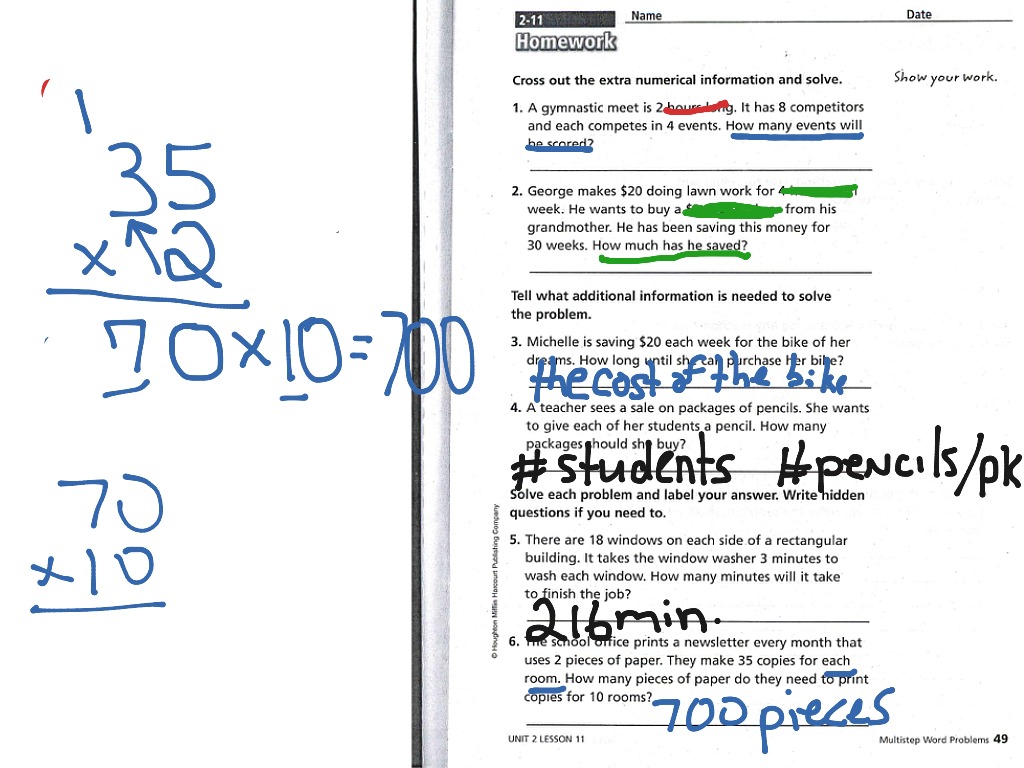 2-11 Name Date
Homework
Cross out the extra numerical information and solve.
Show your work.
1. A gymnastic meet is 2 hours long. It has 8 competitors
and each competes in 4 events. How many events will
be scored?
2. George makes $20 doing lawn work for 4
week. He wants to buy a from his
grandmother. He has been saving this money for
30 weeks. How much has he saved?
Tell what additional information is needed to solve
the problem.
3. Michelle is saving $20 each week for the bike of her
dreams. How long until she can purchase her bike?
the cost of the bike
4. A teacher sees a sale on packages of pencils. She wants
to give each of her students a pencil. How many
packages should she buy?
# students #pencils/pk
Solve each problem and label your answer. Write hidden
questions if you need to.
5. There are 18 windows on each side of a rectangular
building. It takes the window washer 3 minutes to
wash each window. How many minutes will it take
to finish the job?
216 min.
6. The school office prints a newsletter every month that
uses 2 pieces of paper. They make 35 copies for each
room. How many pieces of paper do they need to print
copies for 10 rooms?
700 pieces
UNIT 2 LESSON 11
Multistep Word Problems 49
© Houghton Mifflin Harcourt Publishing Company
1
35
x 2
70 x 10 = 700
70
x 10